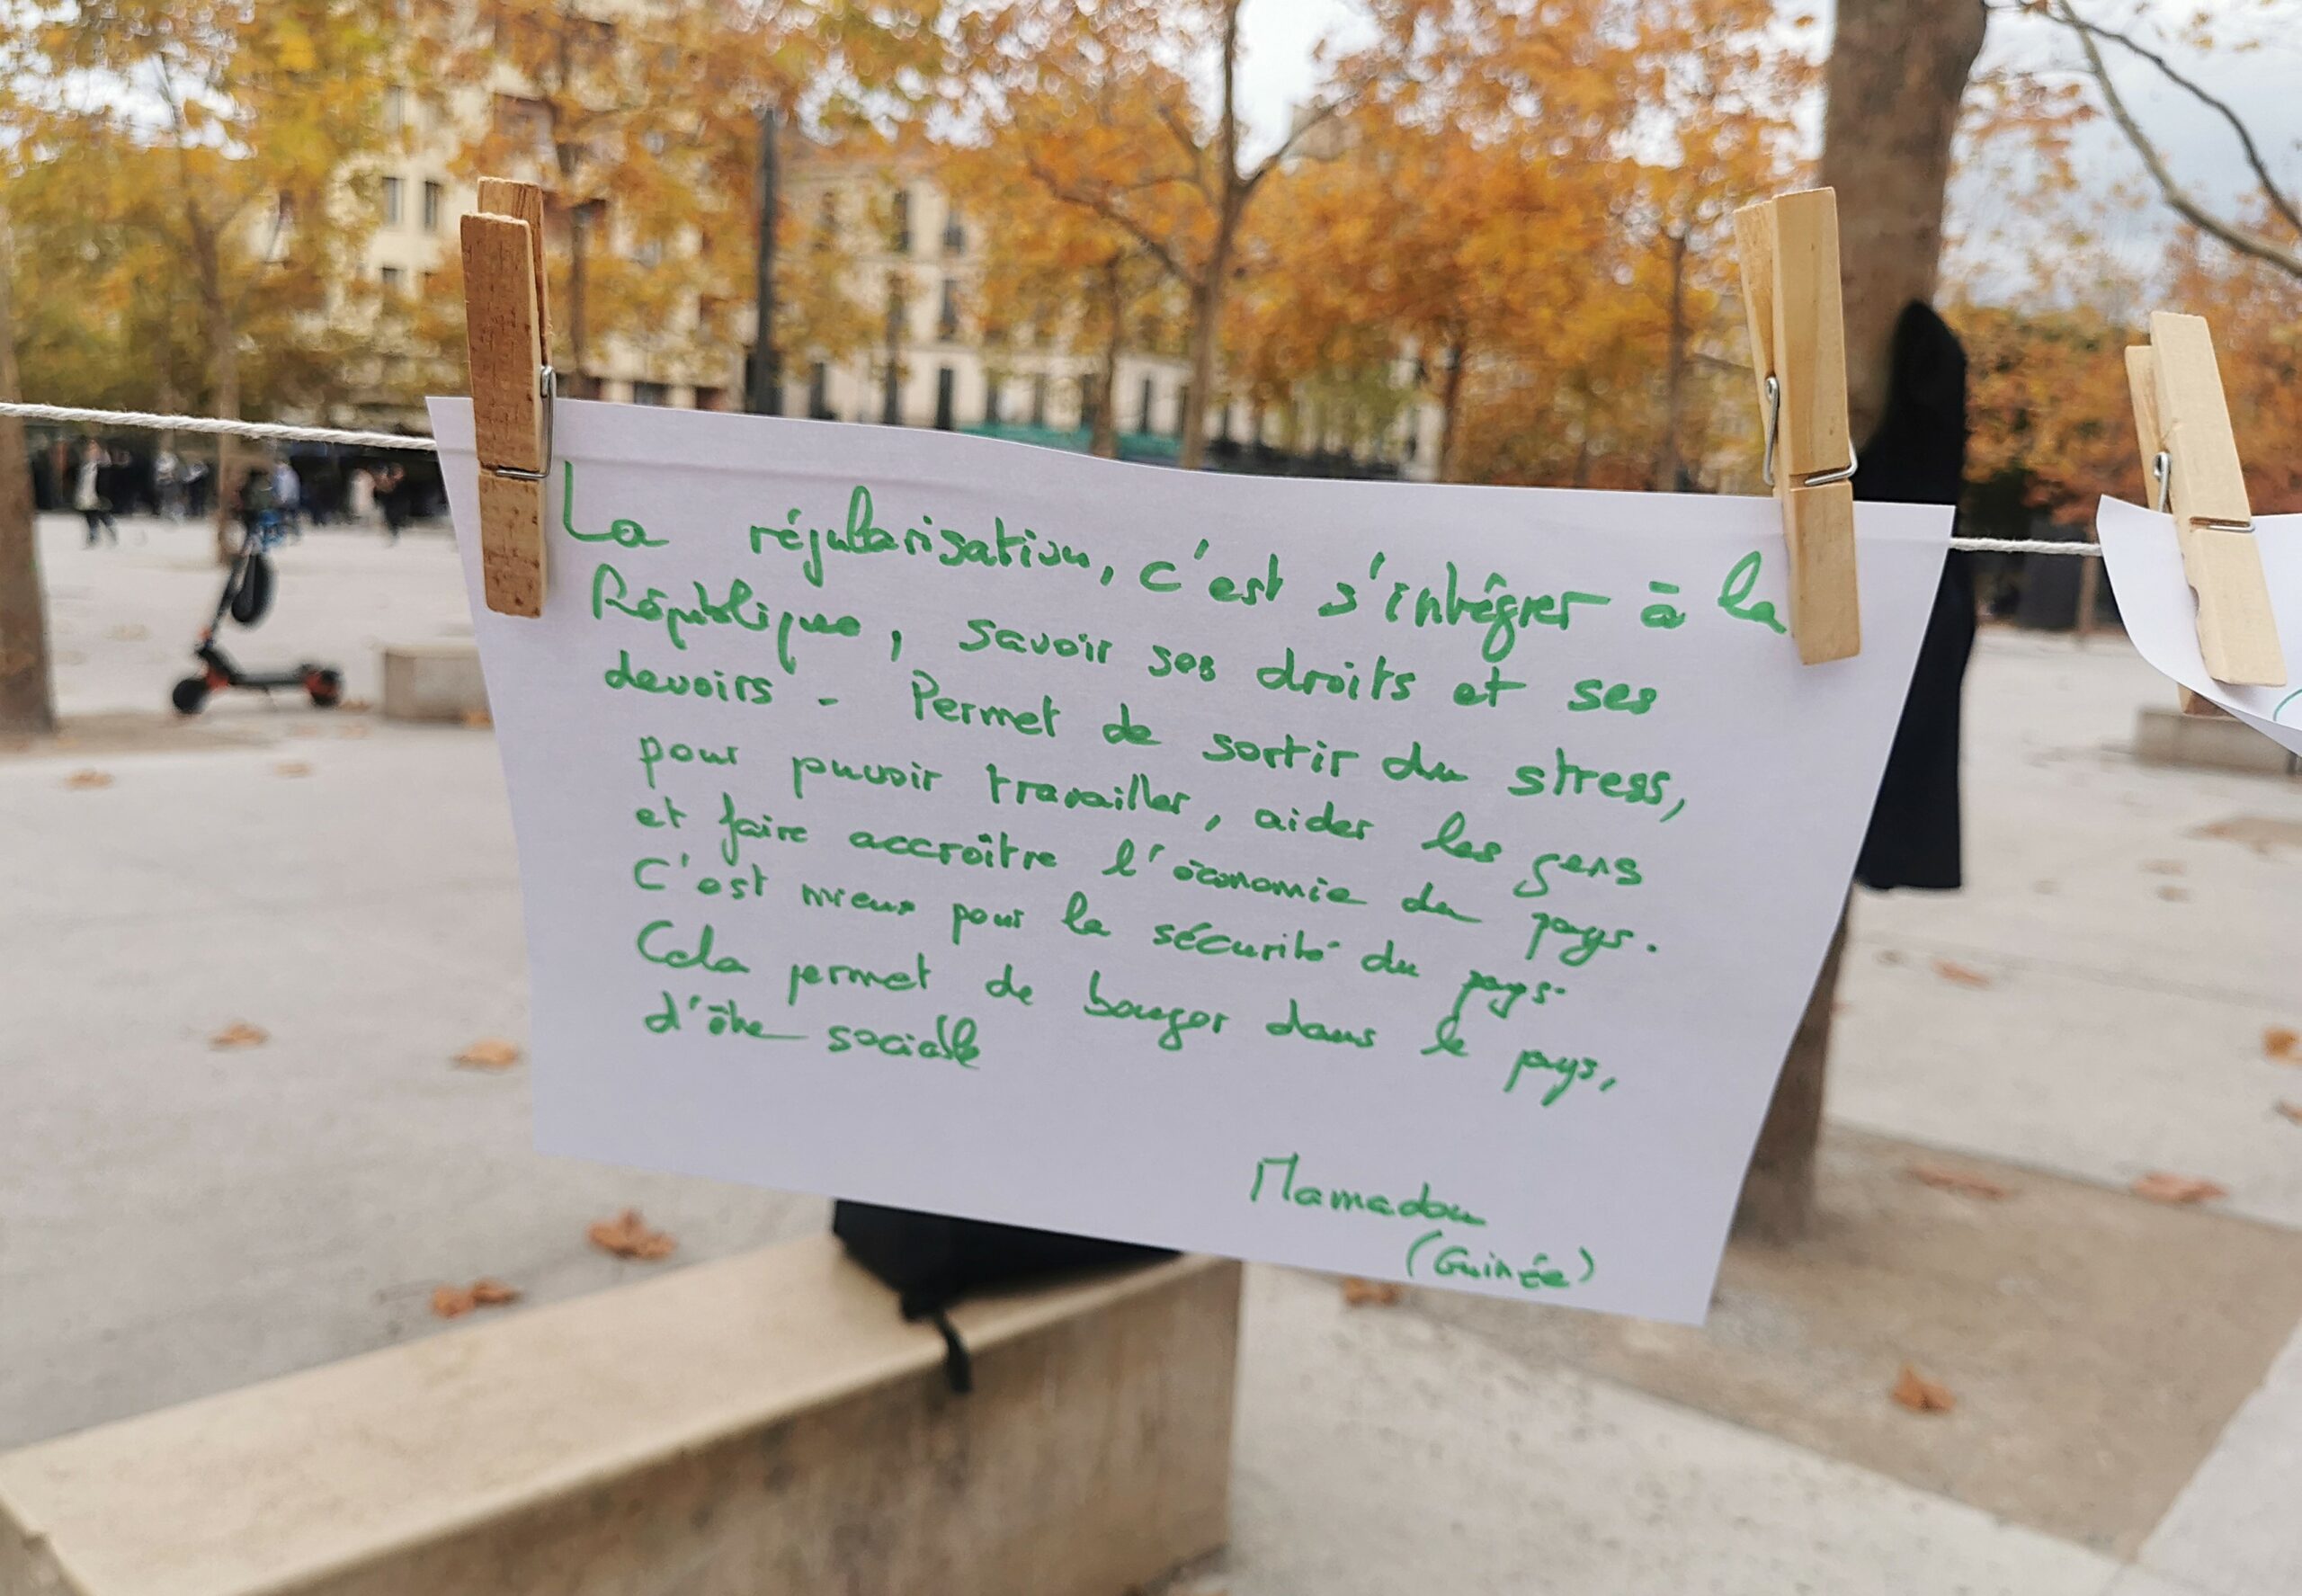 La régularisation, c'est s'intégrer à la
République, savoir ses droits et ses
devoirs - Permet de sortir du stress,
pour pouvoir travailler, aider les gens
et faire accroître l'économie du pays.
C'est mieux pour la sécurité du pays.
Cela permet de bouger dans le pays,
d'être sociable
Mamadou
(Guinée)